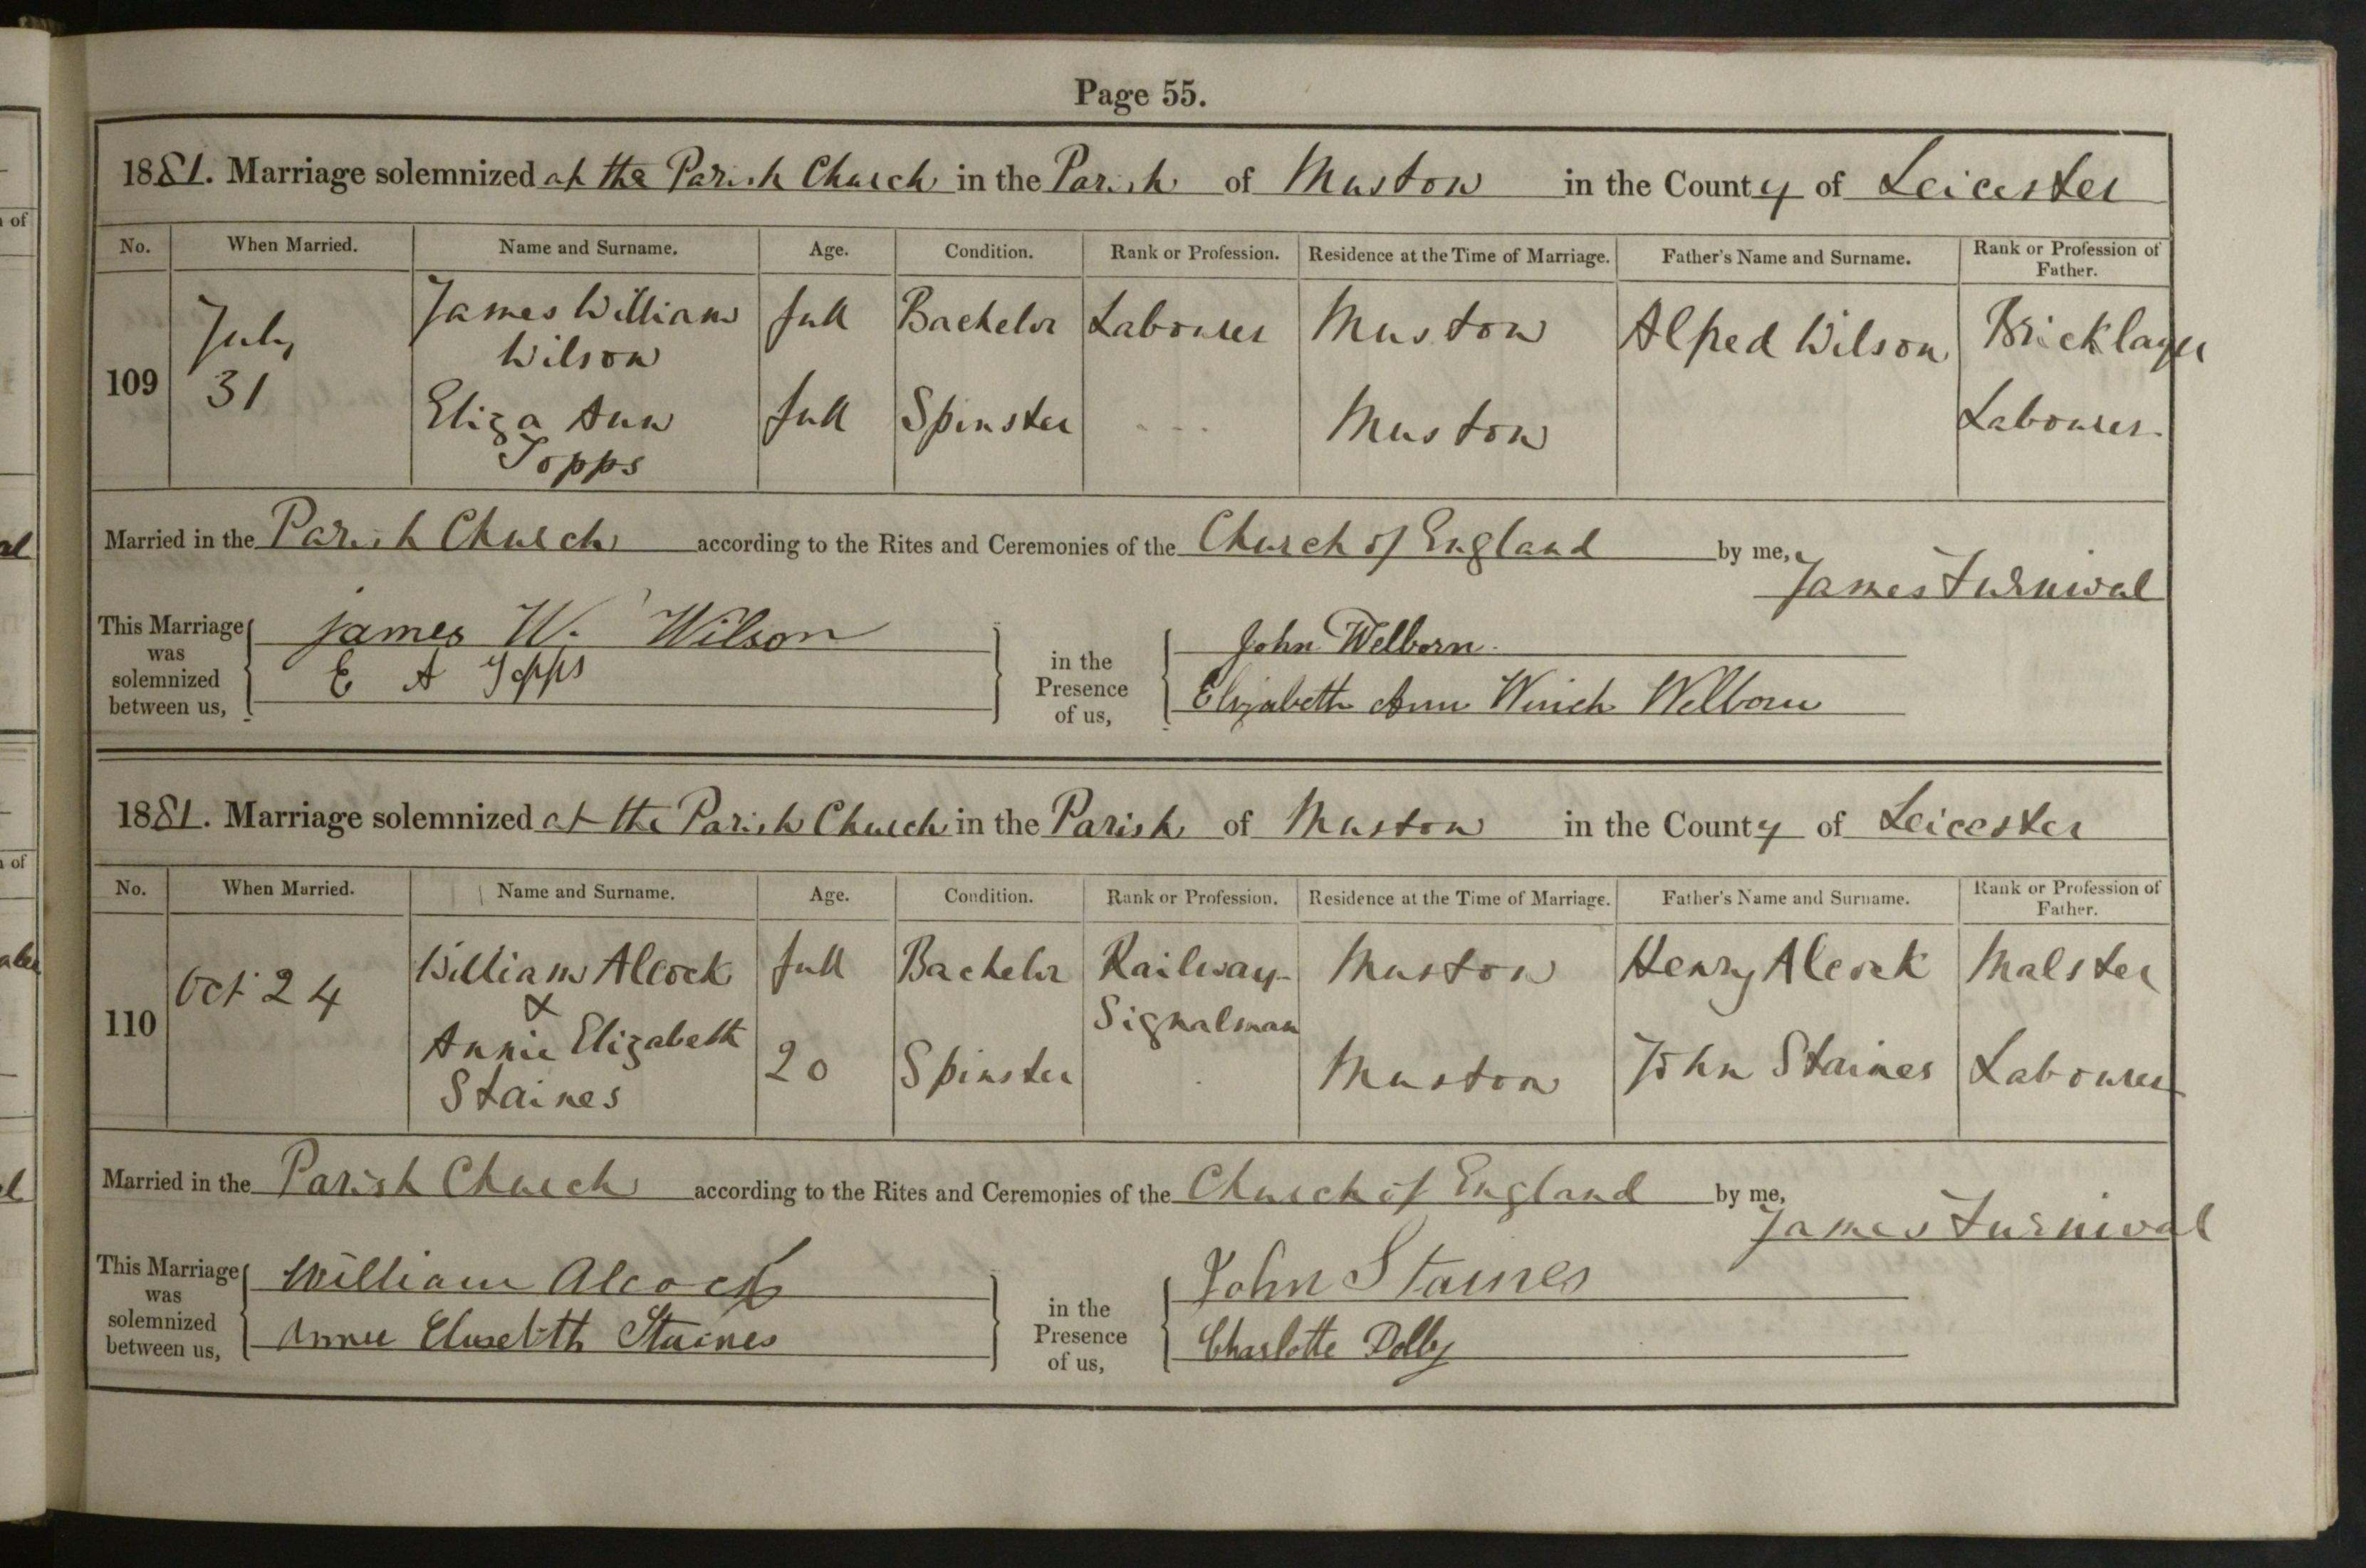 Page 55.
1881. Marriage solemnized at the Parish Church in the Parish of Muston in the County of Leicester
No. When Married. Name and Surname. Age. Condition. Rank or Profession. Residence at the Time of Marriage. Father's Name and Surname. Rank or Profession of Father.
109 July 31 James William Wilson full Bachelor Labourer Muston Alfred Wilson Bricklayer
Eliza Ann Topps full Spinster - - - Muston Labourer.
Married in the Parish Church according to the Rites and Ceremonies of the Church of England by me,
James Furnival
This Marriage was solemnized between us, James W. Wilson in the Presence of us, John Welborn.
E A Topps Elizabeth Ann Winch Welborn
1881. Marriage solemnized at the Parish Church in the Parish of Muston in the County of Leicester
No. When Married. Name and Surname. Age. Condition. Rank or Profession. Residence at the Time of Marriage. Father's Name and Surname. Rank or Profession of Father.
110 Oct 24 William Alcock full Bachelor Railway Signalman Muston Henry Alcock Malster
&
Annie Elizabeth Staines 20 Spinster Muston John Staines Labourer
Married in the Parish Church according to the Rites and Ceremonies of the Church of England by me,
James Furnival
This Marriage was solemnized between us, William Alcock in the Presence of us, John Staines
Annie Staines Charlotte Dolby